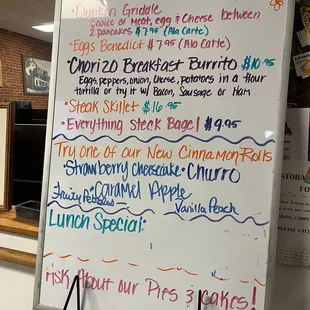 •Dunkin Griddle
Choice of Meat, egg & Cheese between
2 pancakes $7.95 (Ala Carte)
•Eggs Benedict $7.95 (Ala Carte)
•Chorizo Breakfast Burrito $10.95
Eggs, peppers, onion, cheese, potatoes in a flour
tortilla or try it w/ Bacon, Sausage or Ham
•Steak Skillet $16.95
•Everything Steak Bagel $9.95
Try one of our New Cinnamon Rolls
•Strawberry cheesecake •Churro
Fruity Pebbles •Caramel Apple
Vanilla Peach
Lunch Special:
Ask About our Pies & cakes!